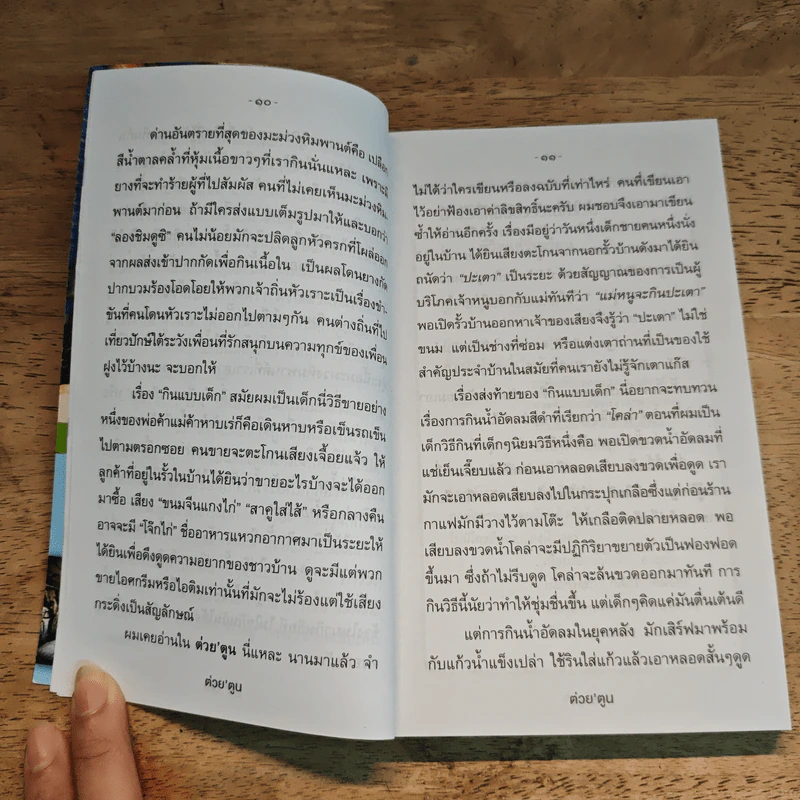 -๑๐-
ด่านอันตรายที่สุดของมะม่วงหิมพานต์คือ เปลือก
สีน้ำตาลคล้ำที่หุ้มเนื้อขาวๆที่เรากินนั่นแหละ เพราะมี
ยางที่จะทำร้ายผู้ที่ไปสัมผัส คนที่ไม่เคยเห็นมะม่วงหิม
พานต์มาก่อน ถ้ามีใครส่งแบบเต็มรูปมาให้และบอกว่า
“ลองชิมดูซิ” คนไม่น้อยมักจะปลิดลูกหัวครกที่โผล่ออก
จากผลส่งเข้าปากกัดเพื่อกินเนื้อใน เป็นผลโดนยางกัด
ปากบวมร้องโอดโอยให้พวกเจ้าถิ่นหัวเราะเป็นเรื่องขำ-
ขันที่คนโดนหัวเราะไม่ออกไปตามๆกัน คนต่างถิ่นที่ไป
เที่ยวปักษ์ใต้ระวังเพื่อนที่รักสนุกบนความทุกข์ของเพื่อน
ฝูงไว้บ้างนะ จะบอกให้
เรื่อง “กินแบบเด็ก” สมัยผมเป็นเด็กนี่วิธีขายอย่าง
หนึ่งของพ่อค้าแม่ค้าหาบเร่ก็คือเดินหาบหรือเข็นรถเข็น
ไปตามตรอกซอย คนขายจะตะโกนเสียงเจื้อยแจ้ว ให้
ลูกค้าที่อยู่ในรั้วในบ้านได้ยินว่าขายอะไรบ้างจะได้ออก
มาซื้อ เสียง “ขนมจีนแกงไก่” “สาคูใส่ไส้” หรือกลางคืน
อาจจะมี “โจ๊กไก่” ชื่ออาหารแหวกอากาศมาเป็นระยะให้
ได้ยินเพื่อดึงดูดความอยากของชาวบ้าน ดูจะมีแต่พวก
ขายไอศกรีมหรือไอติมเท่านั้นที่มักจะไม่ร้องแต่ใช้เสียง
กระดิ่งเป็นสัญลักษณ์
ผมเคยอ่านใน ต่วย'ตูน นี่แหละ นานมาแล้ว จำ
ต่วย'ตูน
-๑๑-
ไม่ได้ว่าใครเขียนหรือลงฉบับที่เท่าไหร่ คนที่เขียนเอา
ไว้อย่าฟ้องเอาค่าลิขสิทธิ์นะครับ ผมชอบจึงเอามาเขียน
ซ้ำให้อ่านอีกครั้ง เรื่องมีอยู่ว่าวันหนึ่งเด็กชายคนหนึ่งนั่ง
อยู่ในบ้าน ได้ยินเสียงตะโกนจากนอกรั้วบ้านดังมาได้ยิน
ถนัดว่า “ปะเตา” เป็นระยะ ด้วยสัญญาณของการเป็นผู้
บริโภคเจ้าหนูบอกกับแม่ทันทีว่า “แม่หนูจะกินปะเตา”
พอเปิดรั้วบ้านออกหาเจ้าของเสียงจึงรู้ว่า “ปะเตา” ไม่ใช่
ขนม แต่เป็นช่างที่ซ่อม หรือแต่งเตาถ่านที่เป็นของใช้
สำคัญประจำบ้านในสมัยที่คนเรายังไม่รู้จักเตาแก๊ส
เรื่องส่งท้ายของ “กินแบบเด็ก” นี่อยากจะทบทวน
เรื่องการกินน้ำอัดลมสีดำที่เรียกว่า “โคล่า” ตอนที่ผมเป็น
เด็กวิธีกินที่เด็กๆนิยมวิธีหนึ่งคือ พอเปิดขวดน้ำอัดลมที่
แช่เย็นเจี๊ยบแล้ว ก่อนเอาหลอดเสียบลงขวดเพื่อดูด เรา
มักจะเอาหลอดเสียบลงไปในกระปุกเกลือซึ่งแต่ก่อนร้าน
กาแฟมักมีวางไว้ตามโต๊ะ ให้เกลือติดปลายหลอด พอ
เสียบลงขวดน้ำโคล่าจะมีปฏิกิริยาขยายตัวเป็นฟองฟอด
ขึ้นมา ซึ่งถ้าไม่รีบดูด โคล่าจะล้นขวดออกมาทันที การ
กินวิธีนี้นัยว่าทำให้ชุ่มชื่นขึ้น แต่เด็กๆคิดแค่มันตื่นเต้นดี
แต่การกินน้ำอัดลมในยุคหลัง มักเสิร์ฟมาพร้อม
กับแก้วน้ำแข็งเปล่า ใช้รินใส่แก้วแล้วเอาหลอดสั้นๆดูด
ต่วย'ตูน